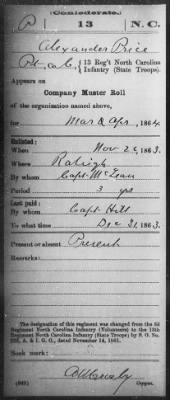 (Confederate.)
P 13 N.C.
Alexander Price
Pt, Co. C, 13 Reg't North Carolina
Infantry (State Troops).
Appears on
Company Muster Roll
of the organization named above,
for Mar & Apr, 1864.
Enlisted:
When Nov 26, 1863.
Where Raleigh
By whom Capt McLean
Period 3 yrs
Last paid:
By whom Capt Hill
To what time Dec 31, 1863.
Present or absent Present
Remarks:
The designation of this regiment was changed from the 3d
Regiment North Carolina Infantry (Volunteers) to the 13th
Regiment North Carolina Infantry (State Troops) by S. O. No.
222, A. & I. G. O., dated November 14, 1861.
Book mark:
(642)
Copyist.